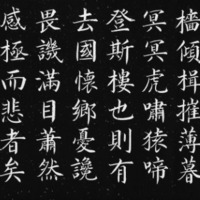 檣傾楫摧薄暮
冥冥虎嘯猿啼
登斯樓也則有
去國懷鄉憂讒
畏譏滿目蕭然
感極而悲者矣